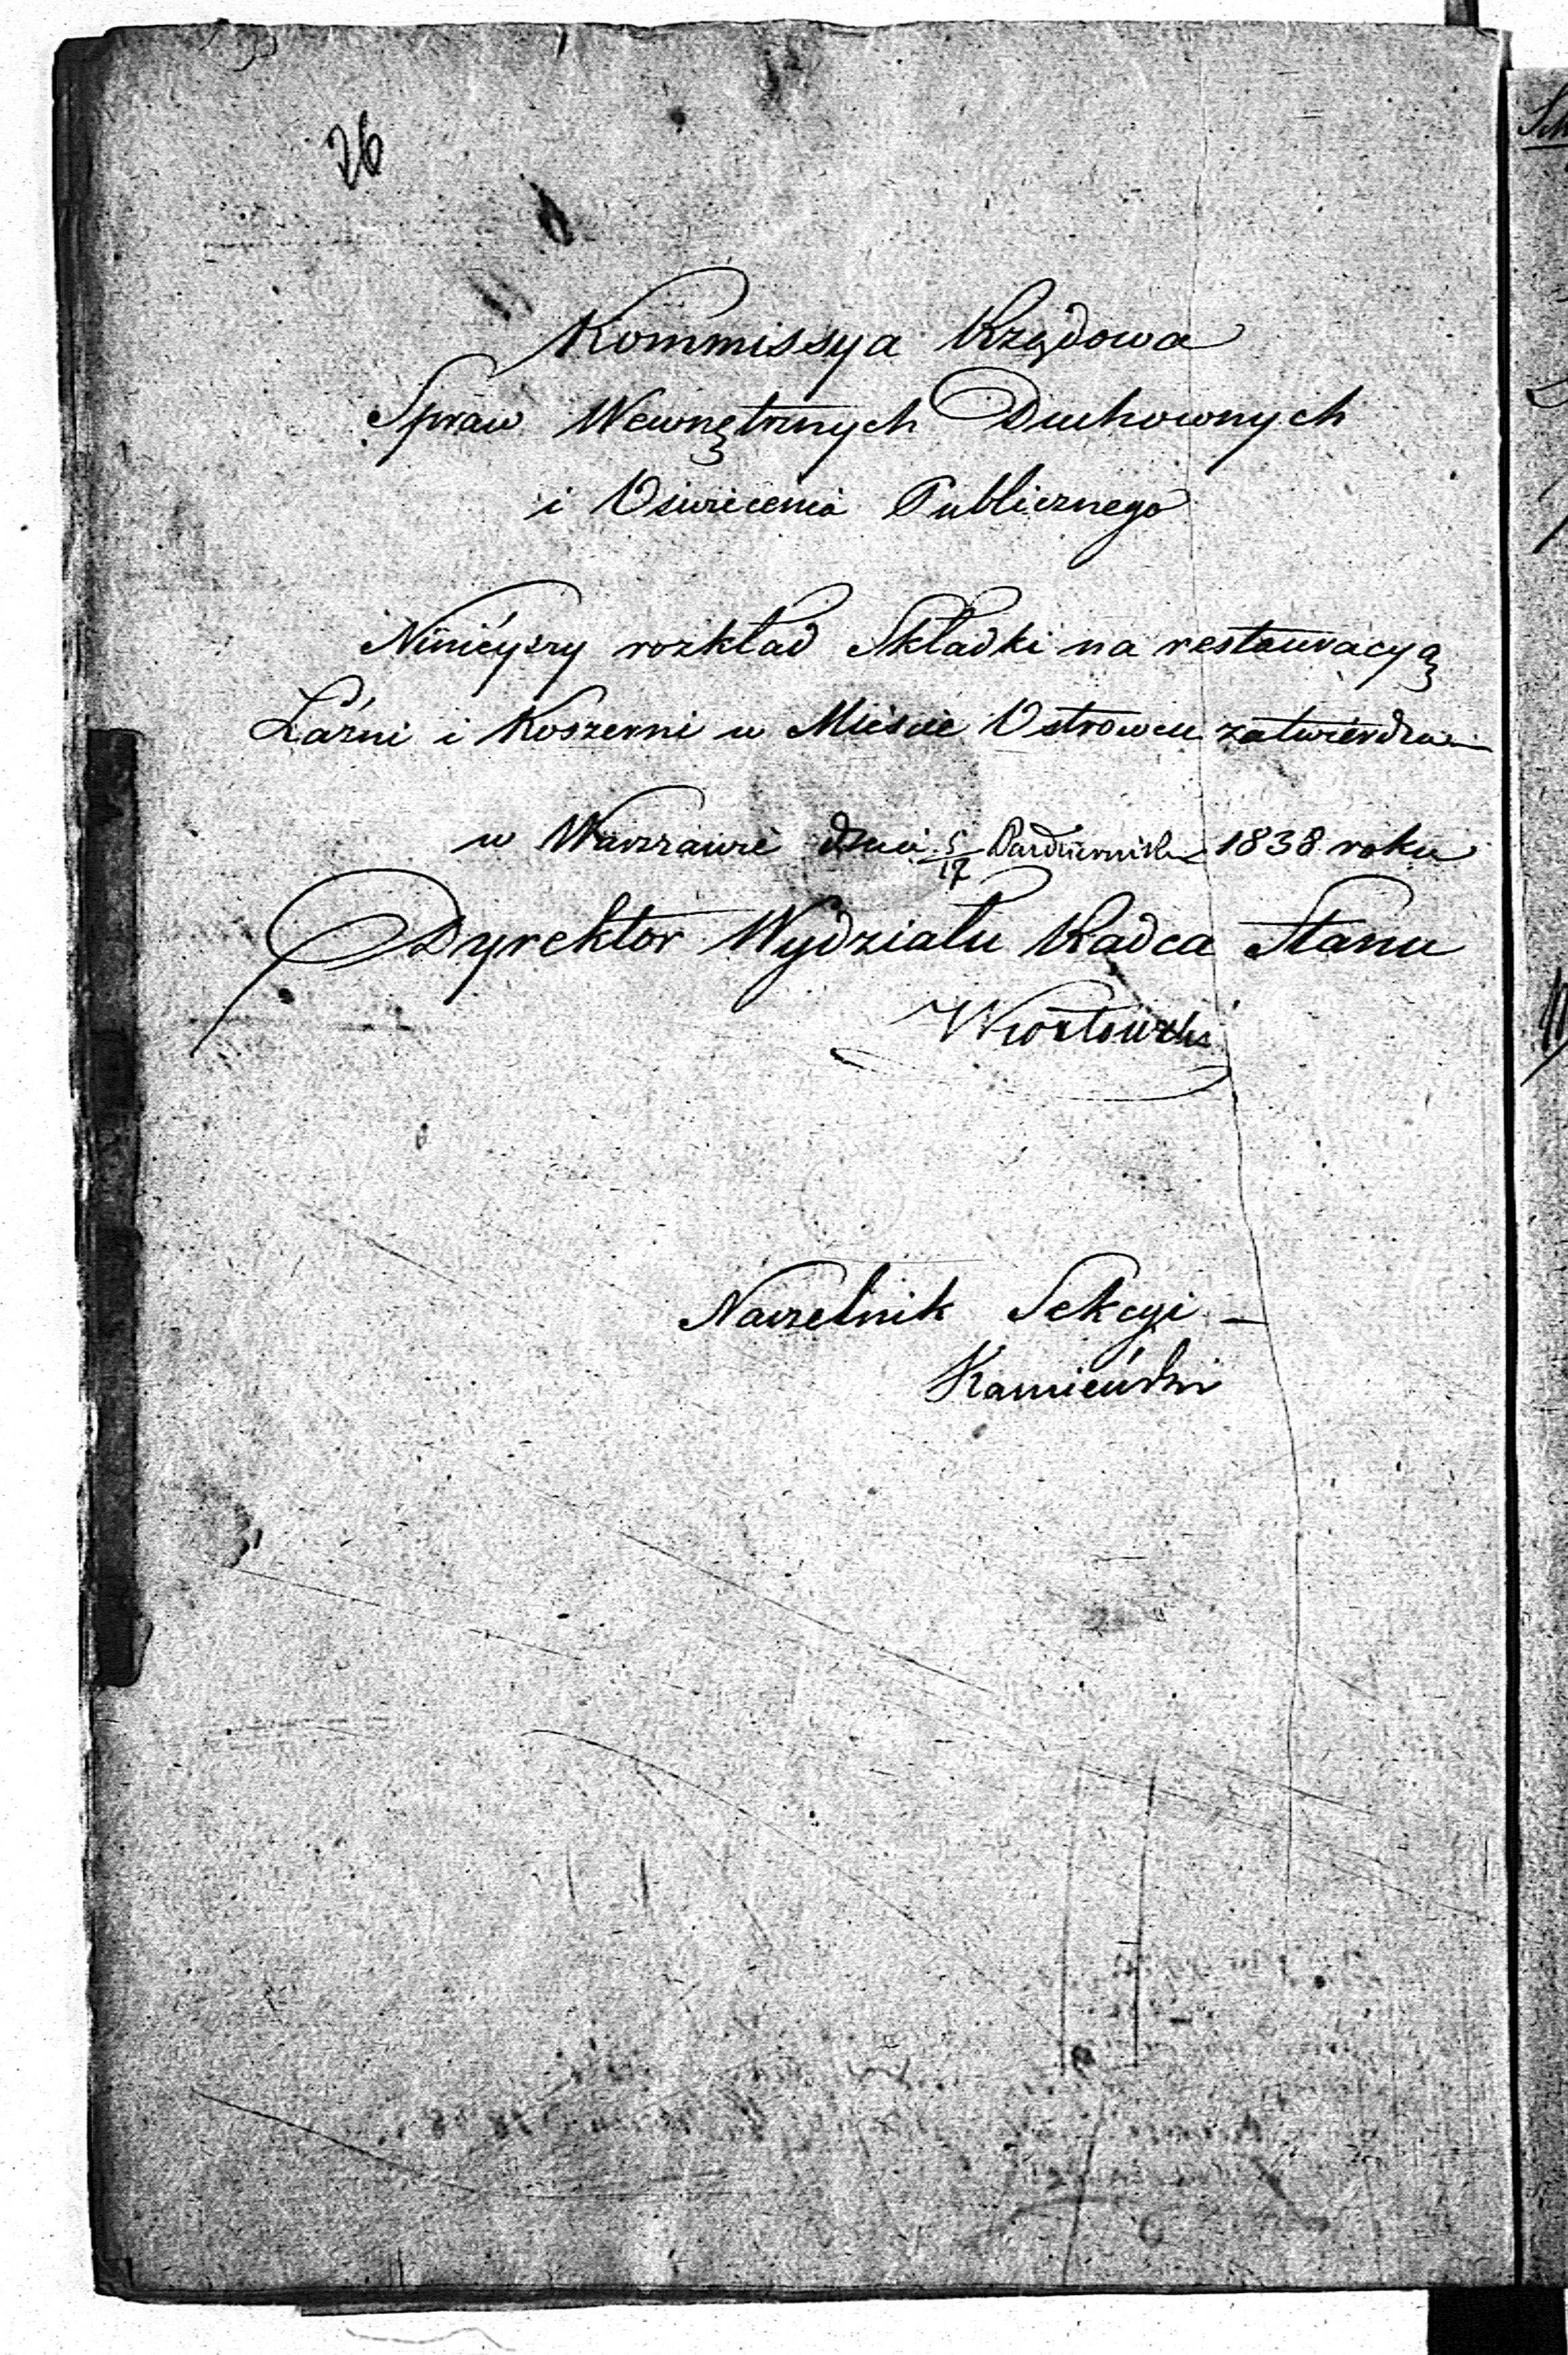 26
Kommissya Rządowa
Spraw Wewnętrznych Duchownych
i Oświecenia Publicznego
Ninieyszy rozkład Składki na restauracyą
Łaźni i Koszerni w Mieście Ostrowcu zatwierdza
w Warszawie dnia 5/17 Października 1838 roku
Dyrektor Wydziału Radca Stanu
Naczelnik Sekcyi
Kamieński